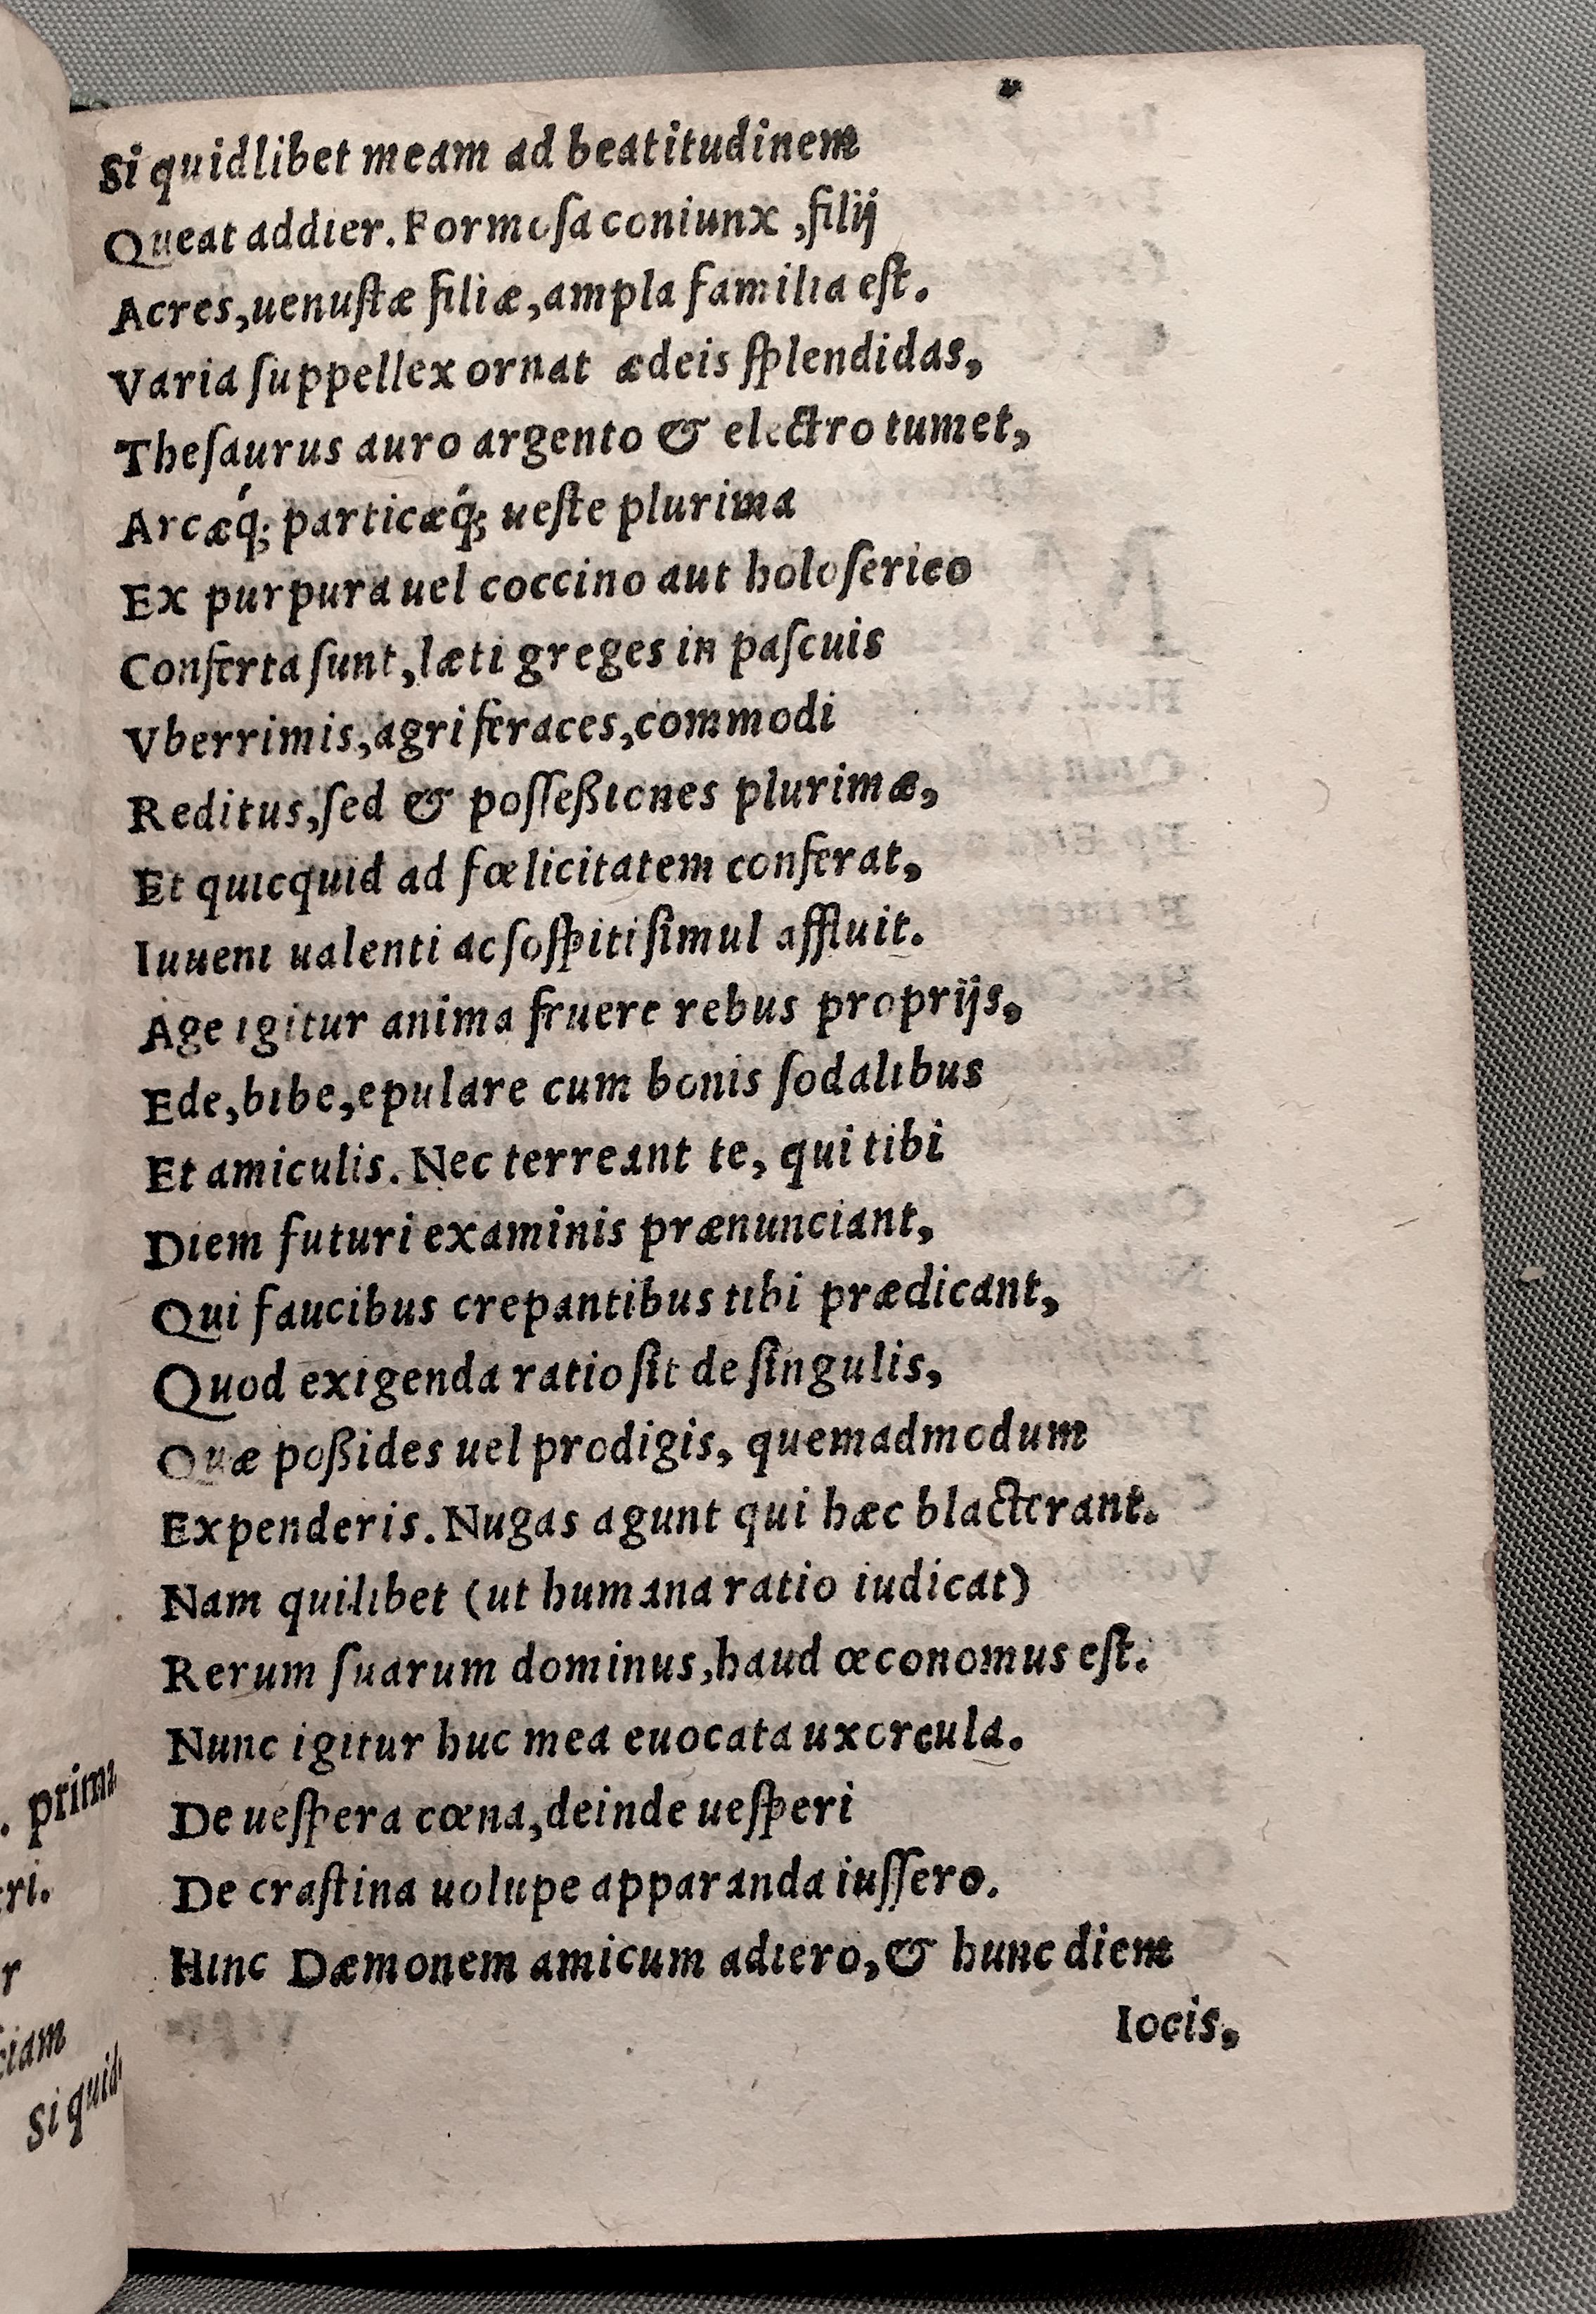 Si quidlibet meam ad beatitudinem
Queat addier. Formosa coniunx, filij
Acres, uenustæ filiæ, ampla familia est.
Varia suppellex ornat ædeis splendidas,
Thesaurus auro argento & electro tumet,
Arcæq́; particæq́; ueste plurima
Ex purpura uel coccino aut holoserico
Conferta sunt, læti greges in pascuis
Vberrimis, agri feraces, commodi
Reditus, sed & posseßiones plurimæ,
Et quicquid ad fœlicitatem conferat,
Iuueni ualenti ac sospiti simul affluit.
Age igitur anima fruere rebus proprijs,
Ede, bibe, epulare cum bonis sodalibus
Et amiculis. Nec terreant te, qui tibi
Diem futuri examinis prænunciant,
Qui faucibus crepantibus tibi prædicant,
Quod exigenda ratio sit de singulis,
Quæ poßides uel prodigis, quemadmodum
Expenderis. Nugas agunt qui hæc blacterant.
Nam quilibet (ut humana ratio iudicat)
Rerum suarum dominus, haud œconomus est.
Nunc igitur huc mea euocata uxorcula.
De uespera cœna, deinde uesperi
De crastina uolupe apparanda iussero.
Hinc Dæmonem amicum adiero, & hunc diem
Iocis,